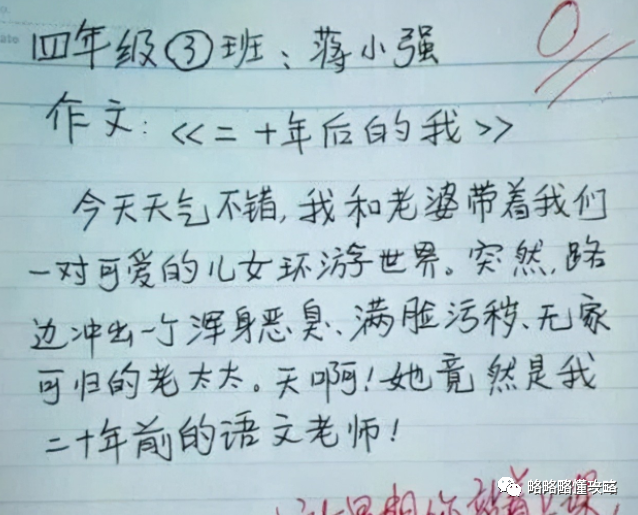 四年级③班：蒋小强
0
作文：《二十年后的我》
今天天气不错,我和老婆带着我们
一对可爱的儿女环游世界。突然,路
边冲出一个浑身恶臭、满脸污秽、无家
可归的老太太。天啊!她竟然是我
二十年前的语文老师!
略略略懂攻略